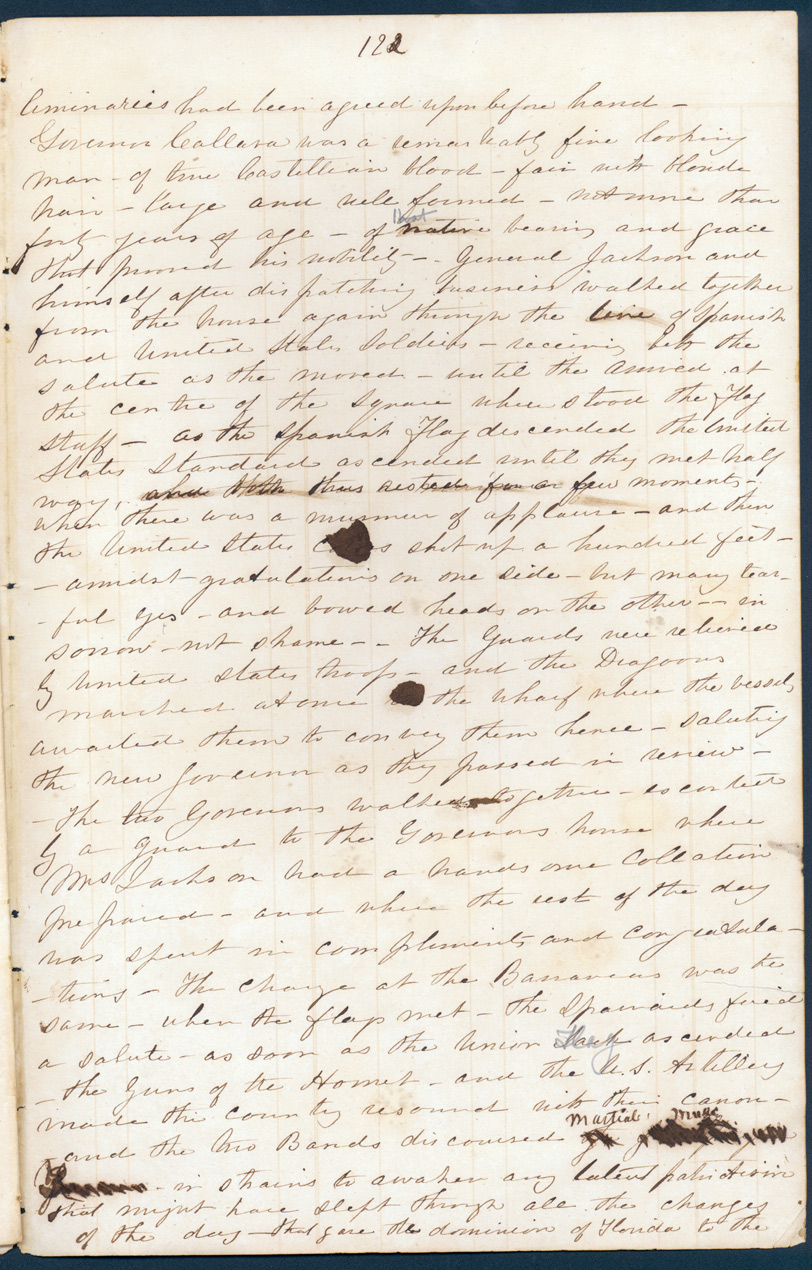 122
liminaries had been agreed upon before hand -
Governor Callava was a remarkably fine looking
man - of true Castillian blood - fair with blonde
hair - large and well formed - not more than
forty years of age - of native bearing and grace
that prooved his nobility - . General Jackson and
himself after dispatching business walked together
from the house again through the line of Spanish
and United States Soldiers - receiving both the
salute as the moved - until the arrived at
the centre of the square where stood the Flag
staff - as the Spanish Flag descended the United
States Standard ascended until they met half
way, and both thus rested for a few moments -
when there was a murmur of applause - and then
the United States shot up a hundred feet -
- amidst gratulations on one side - but many tear-
- ful eyes - and bowed heads on the other -- in
sorrow - not shame - - The Guards were relieved
by United States troops - and the Dragoons
marched at once the wharf where the vessels
awaited them to convey them hence - saluting
the new Governor as they passed in review -
- The two Governors walked together - escorted
by a guard to the Governors house where
Mrs Jackson had a handsome Collation
prepared - and where the rest of the day
was spent in compliments and congratula-
- tions - The change at the Barrancas was the
same - when the flags met - the Spaniards fired
a salute - as soon as the Union Flag ascended
- the Guns of the Hornet - and the U.S. Artillery
made the country resound with their canon -
Martial Music
- and the two Bands discoursed
- in strains to awaken any latent patriotism
that might have slept through all the changes
of the day - that gave the dominion of Florida to the